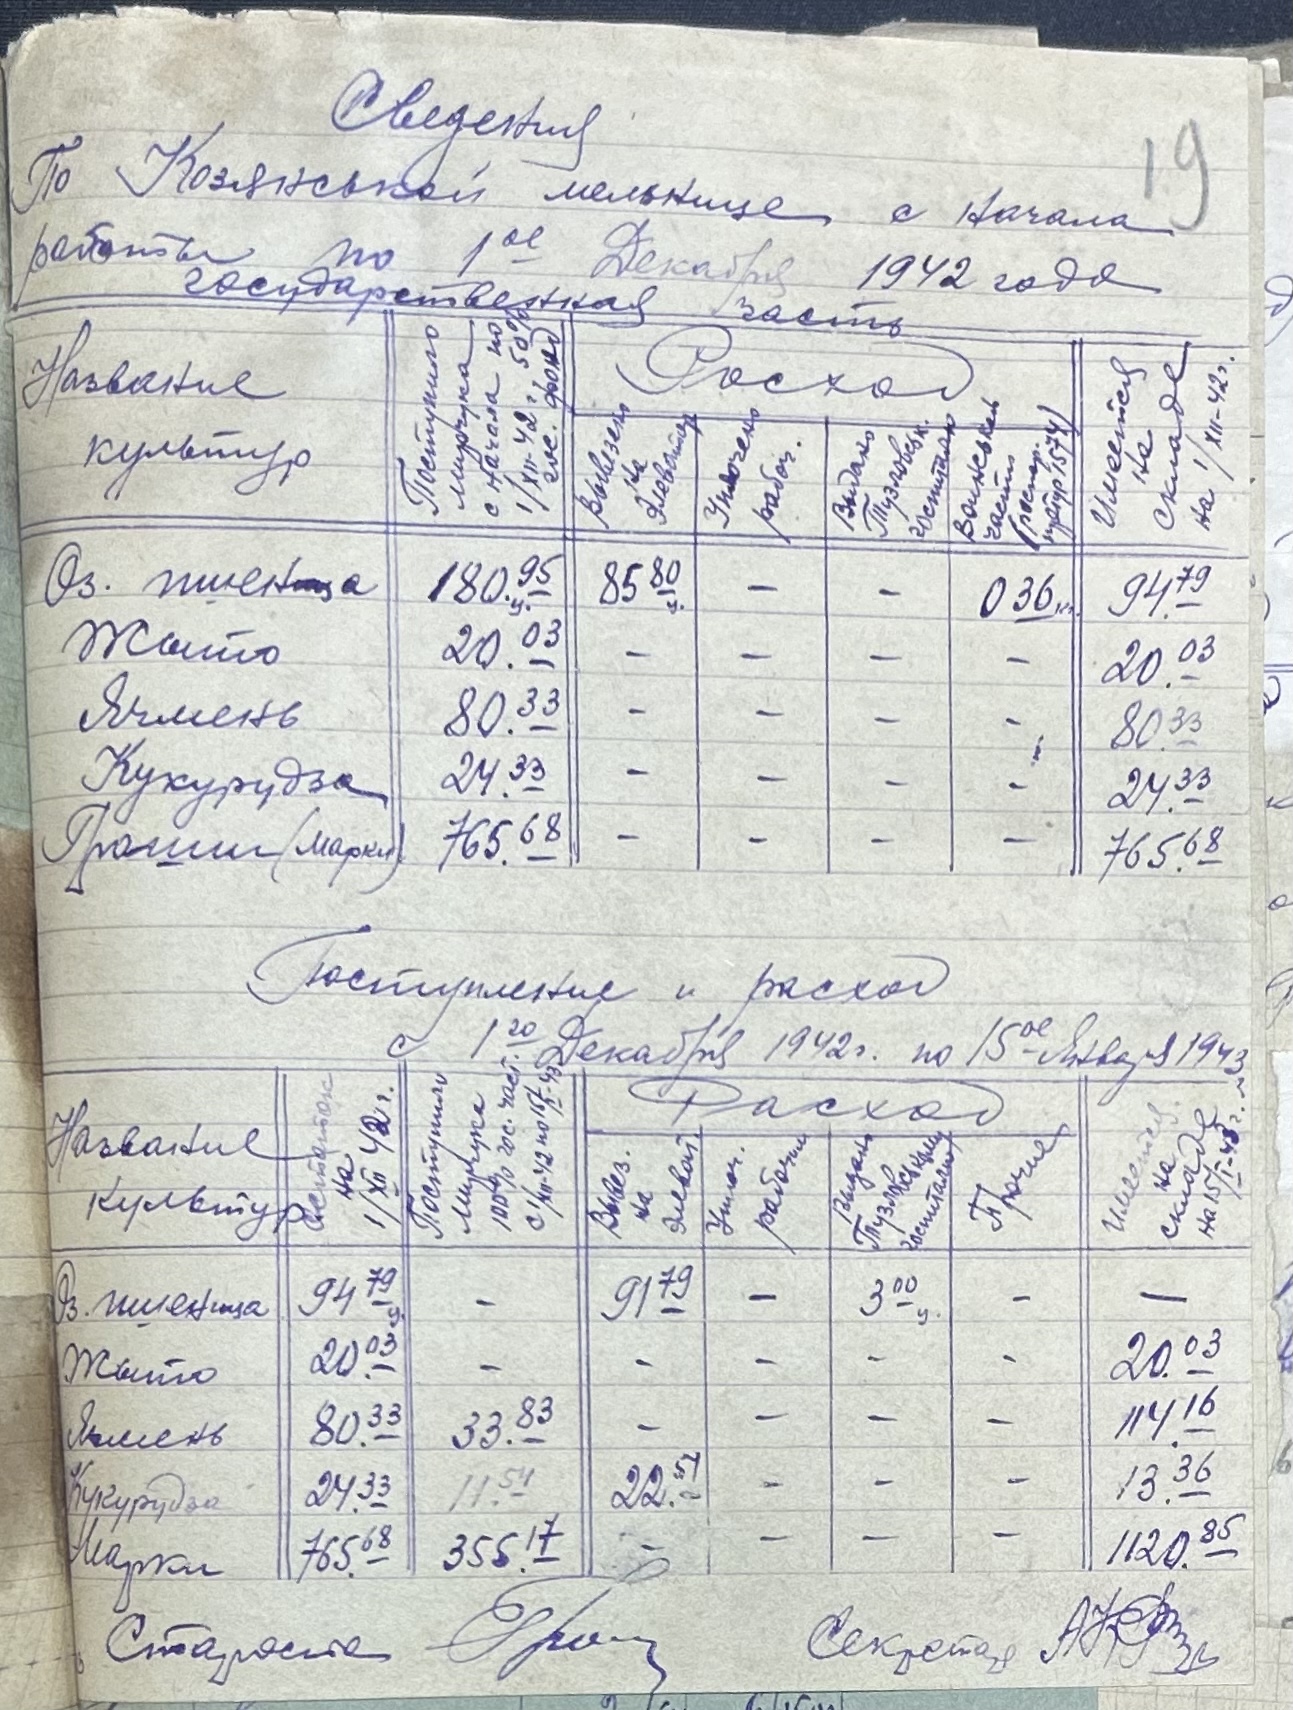 19
Сведения
По Козянськой мельнице с начала
работы по 1ое Декабря 1942 года
государственная часть
Название культур
Поступило мирчука с начала по 1/XII-42 г. 50% гос. фонд
Росход
Вывезено на элеватор
Уплочено рабоч.
Выдано Тузловськ. госпиталю
Воинская часть
Имеется на складе на 1/XII-42 г.
Оз. пшеница 180.95 ц. 85 80 ц. - - 0 36 кг. 94.79
Жыто 20.03 - - - - 20.03
Ячмень 80.33 - - - - 80.33
Кукурудза 24.33 - - - - 24.33
Гроши (марки) 765.68 - - - - 765.68
Поступление и расход
с 1го Декабря 1942 г. по 15ое Января 1943
Название культур
Остаток на 1/XII 42 г.
Поступило мирчука 100% гос. част. с 1/XII-42 по 15/I-43
Расход
Вывез. на элеват.
Уплоч. рабочим
Выдано Тузловському госпиталю
Прочие
Имеется на складе на 15/I-43 г.
Оз. пшеница 94 79 ц. - 91 79 - 3 00 ц. - —
Жыто 20.03 - - - - - 20.03
Ячмень 80.33 33.83 - - - - 114.16
Кукурудза 24.33 11.54 22.51 - - - 13.36
Марки 765.68 355.17 - - - - 1120.85
Староста Секретарь